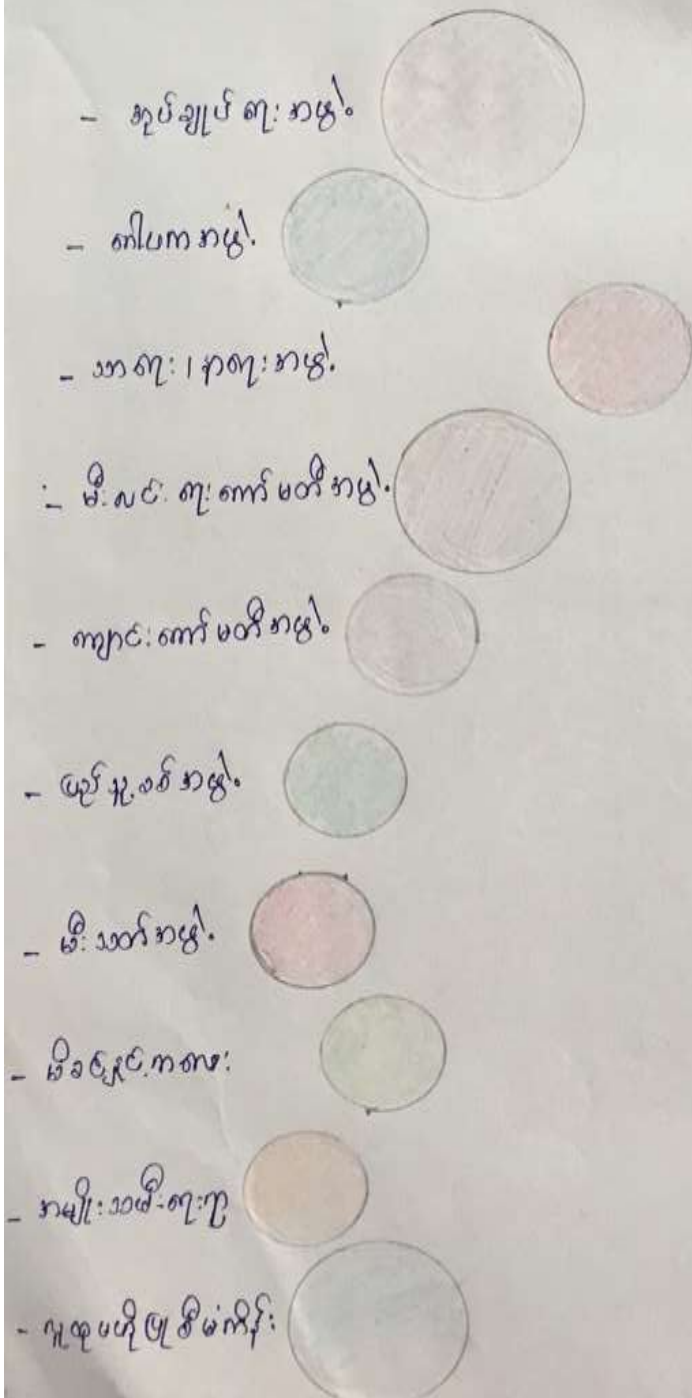 - အုပ်ချုပ်ရေးအဖွဲ့
- ဂေါပကအဖွဲ့
- သာရေး၊နာရေးအဖွဲ့
- မီးလင်းရေးကော်မတီအဖွဲ့
- ကျောင်းကော်မတီအဖွဲ့
- ပြည်သူ့စစ်အဖွဲ့
- မီးသတ်အဖွဲ့
- မိခင်နှင့်ကလေး
- အမျိုးသမီးရေးရာ
- လူထုဗဟိုပြုစီမံကိန်း